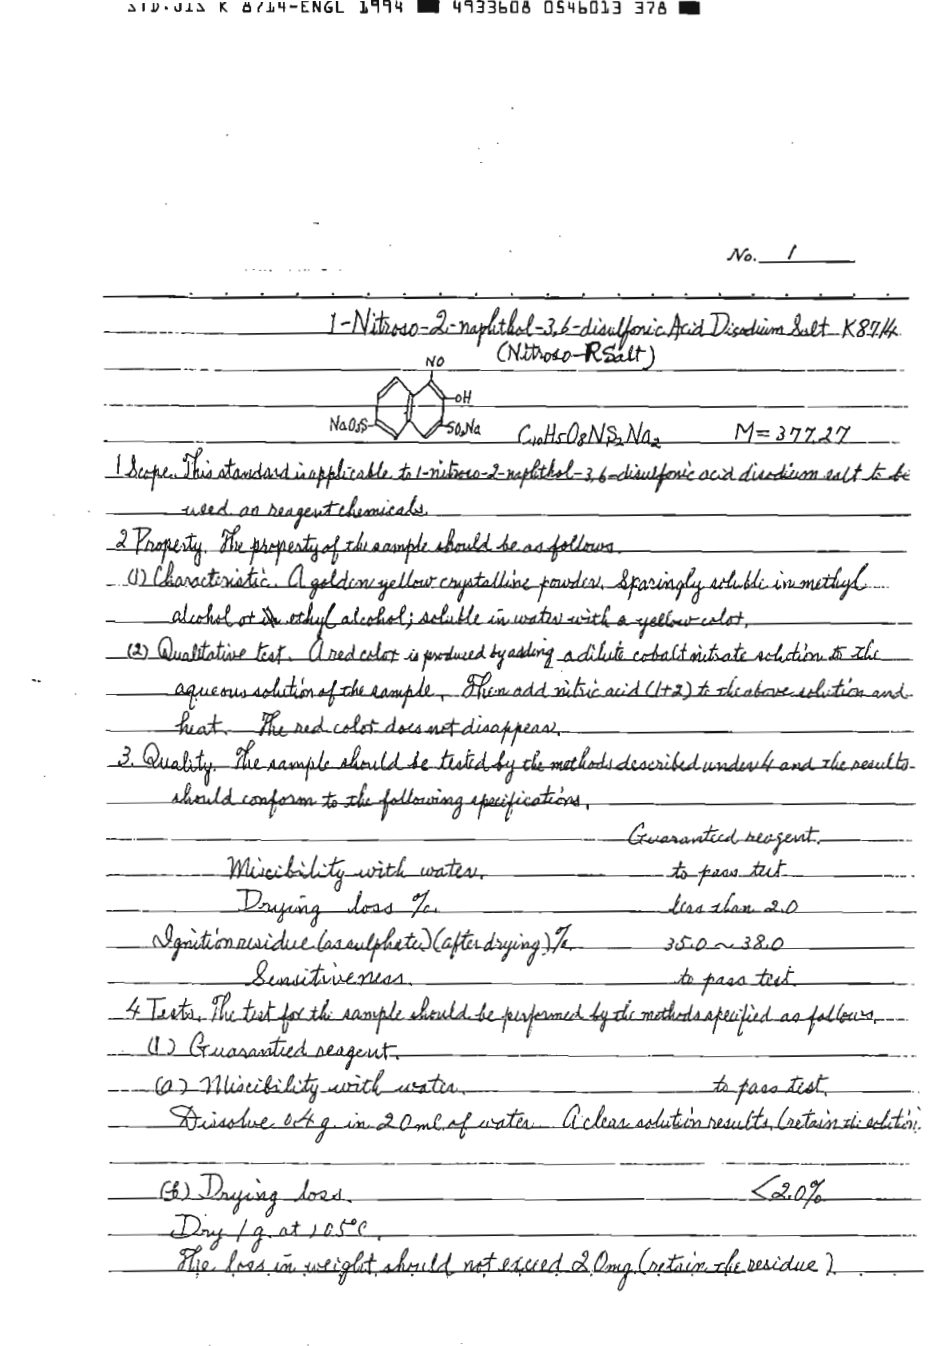 STD.JIS K 8714-ENGL 1994 4933608 0546013 378
No. 1
1-Nitroso-2-naphthol-3,6-disulfonic Acid Disodium Salt K8714
(Nitroso-R Salt)
NO
OH
NaO3S
SO3Na
C10H5O8NS2Na2 M=377.27
1 Scope. This standard is applicable to 1-nitroso-2-naphthol-3,6-disulfonic acid disodium salt to be
used as reagent chemicals.
2 Property. The property of the sample should be as follows.
(1) Characteristic. A golden yellow crystalline powder. Sparingly soluble in methyl
alcohol or in ethyl alcohol; soluble in water with a yellow color.
(2) Qualitative test. A red color is produced by adding a dilute cobalt nitrate solution to the
aqueous solution of the sample. Then add nitric acid (1+2) to the above solution and
heat. The red color does not disappear.
3. Quality. The sample should be tested by the methods described under 4 and the results
should conform to the following specifications.
Guarantied reagent.
Miscibility with water. to pass test
Drying loss %. less than 2.0
Ignition residue (as sulphate) (after drying) %. 35.0~38.0
Sensitiveness. to pass test.
4 Tests. The test for the sample should be performed by the methods specified as follows.
(1.) Guarantied reagent.
(a) Miscibility with water. to pass test.
Dissolve 0.4 g. in 20 ml. of water. A clear solution results, (retain the solution.
(b) Drying loss. <2.0%
Dry 1 g. at 105°C.
The loss in weight should not exceed 20mg. (retain the residue)